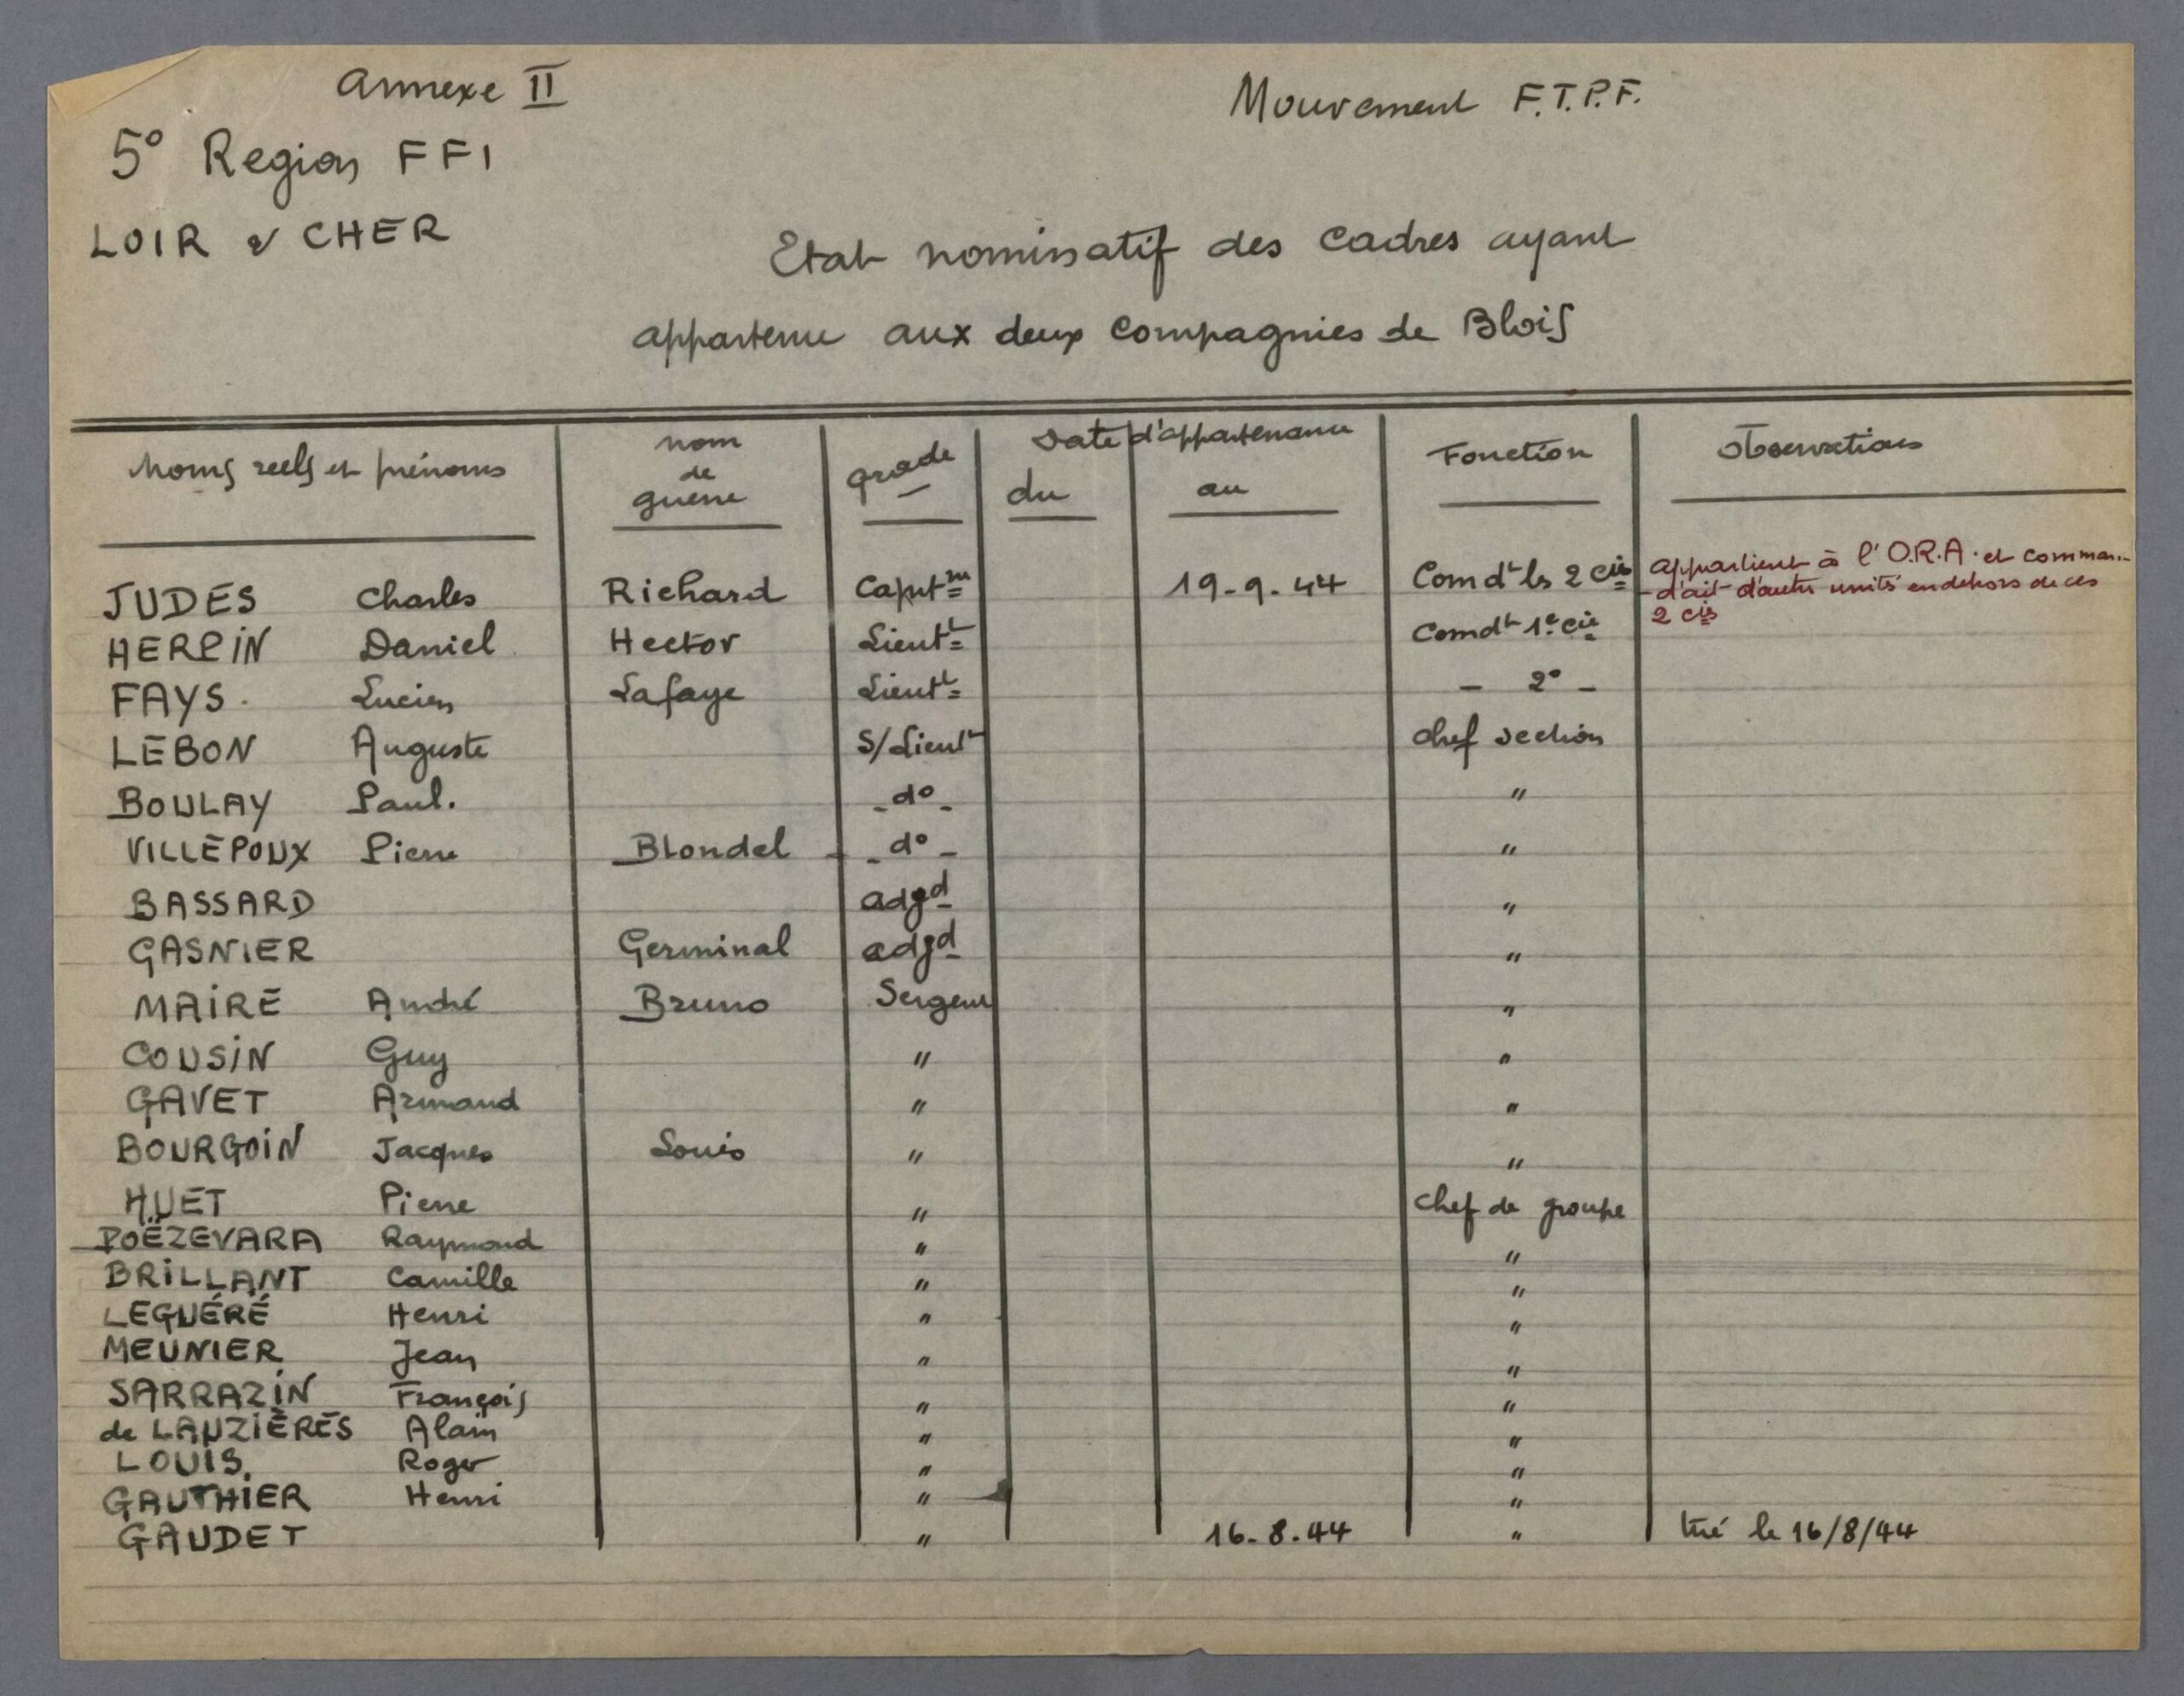 Annexe II
Mouvement F.T.P.F.
5° Region FFI
LOIR & CHER
Etat nominatif des cadres ayant
appartenu aux deux compagnies de Blois
Noms réels et prénoms nom de guerre grade Date d'appartenance du au Fonction Observations
JUDES Charles Richard Capitne 19-9-44 Comdt les 2 cies appartient à l'O.R.A. et comman-
-dait d'autres unités en dehors de ces
2 cies
HERPIN Daniel Hector Lieutt Comdt 1e cie
FAYS. Lucien Lafaye Lieutt - 2° -
LEBON Auguste S/Lieutt chef section
BOULAY Paul. - d° - "
VILLEPOUX Pierre Blondel - d° - "
BASSARD adjd "
GASNIER Germinal adjd "
MAIRE André Bruno Sergent "
COUSIN Guy " "
GAVET Armand " "
BOURGOIN Jacques Louis " "
HUET Pierre " chef de groupe
POËZEVARA Raymond " "
BRILLANT Camille " "
LEGUÉRÉ Henri " "
MEUNIER Jean " "
SARRAZIN François " "
de LAUZIÈRES Alain " "
LOUIS. Roger " "
GAUTHIER Henri " "
GAUDET " 16-8-44 " tué le 16/8/44